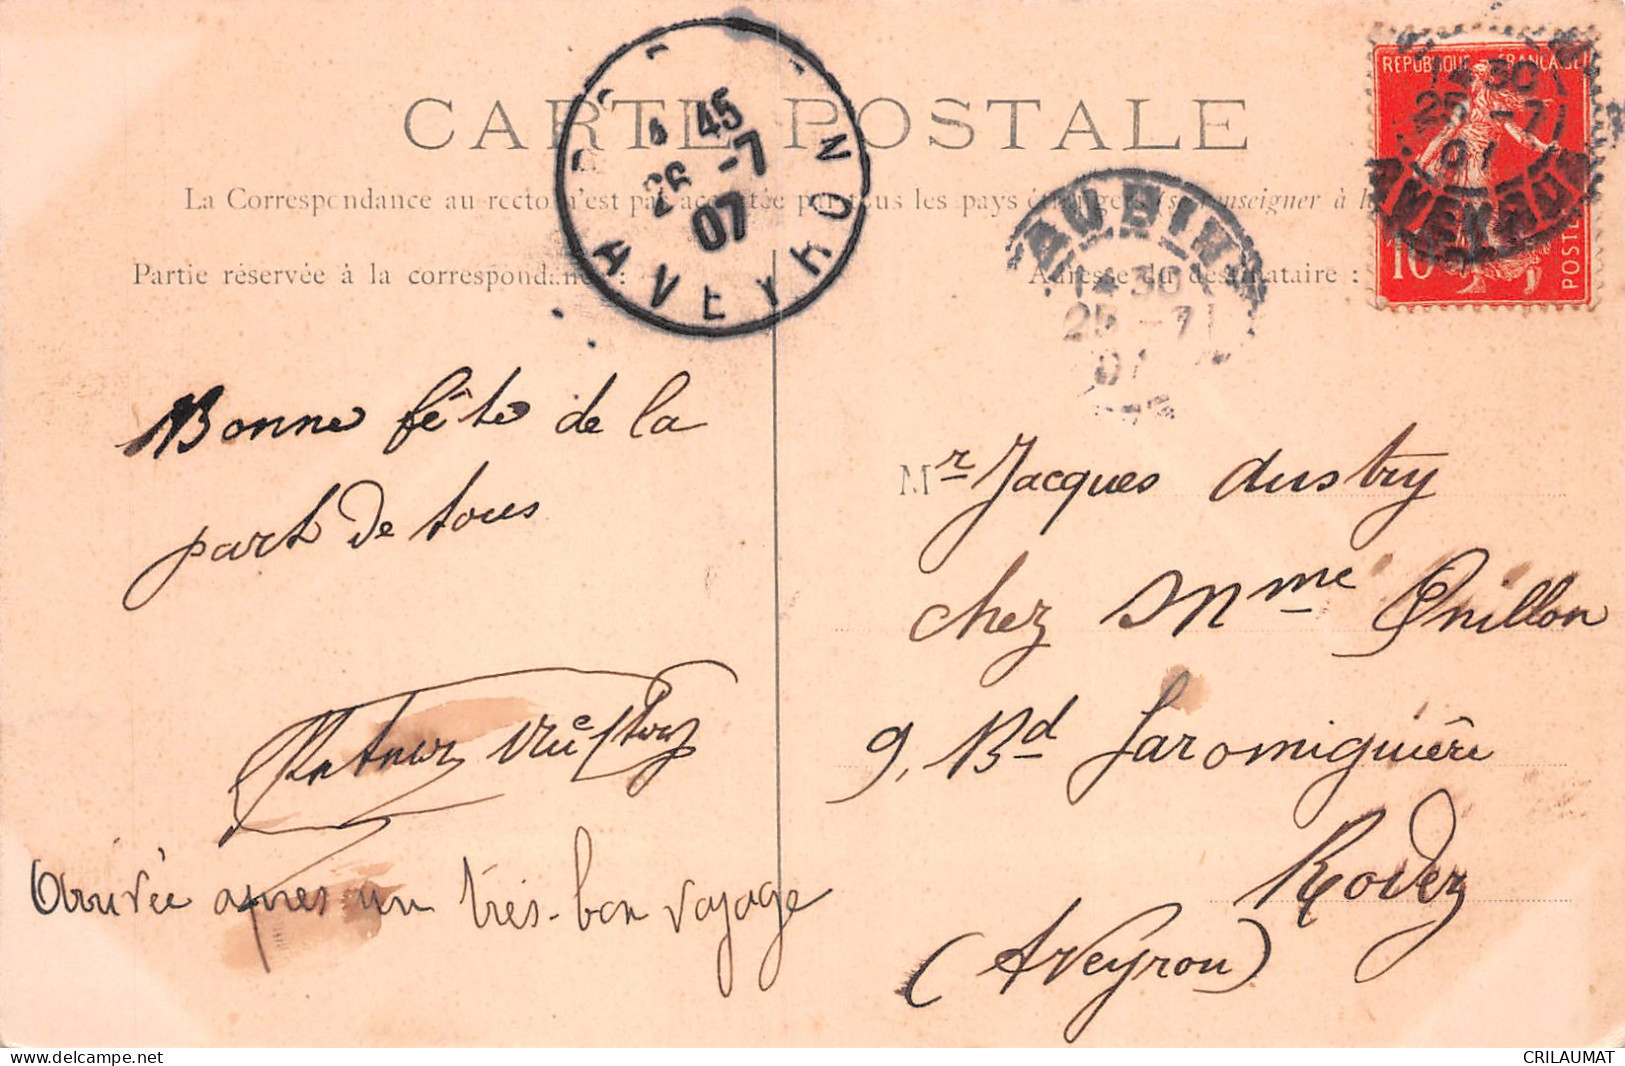 CARTE POSTALE
La Correspondance au recto n'est pas acceptée par tous les pays étrangers (se renseigner à la
Partie réservée à la correspondance :
Adresse du destinataire :
4 45
26 -7
07
AVEYRON
AUBIN
14 30
25 -7
07
RÉPUBLIQUE FRANÇAISE
14 30
25 -7
07
AVEYRON
10
POSTES
Bonne fête de la
part de tous
Arrivée après un très-bon voyage
Mr Jacques Austry
chez Mme
9, Bd Laromiguière
Rodez
(Aveyron)
CRILAUMAT
www.delcampe.net